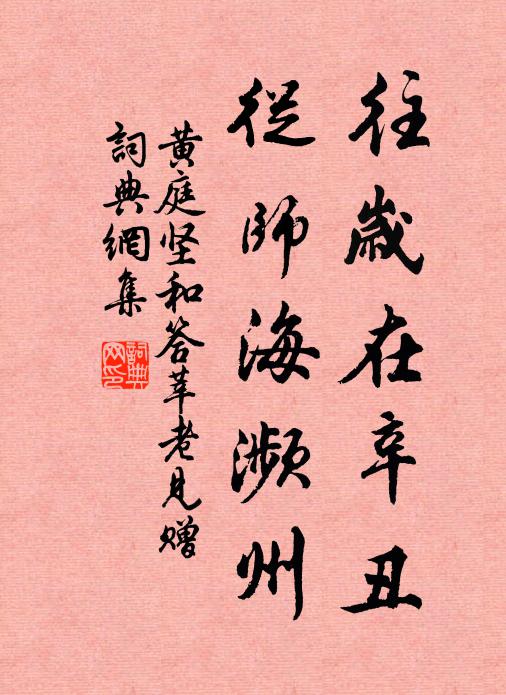 往歲在辛丑
從師海瀕州
黃庭坚和答莘老見贈
詞典網集
詞典網印